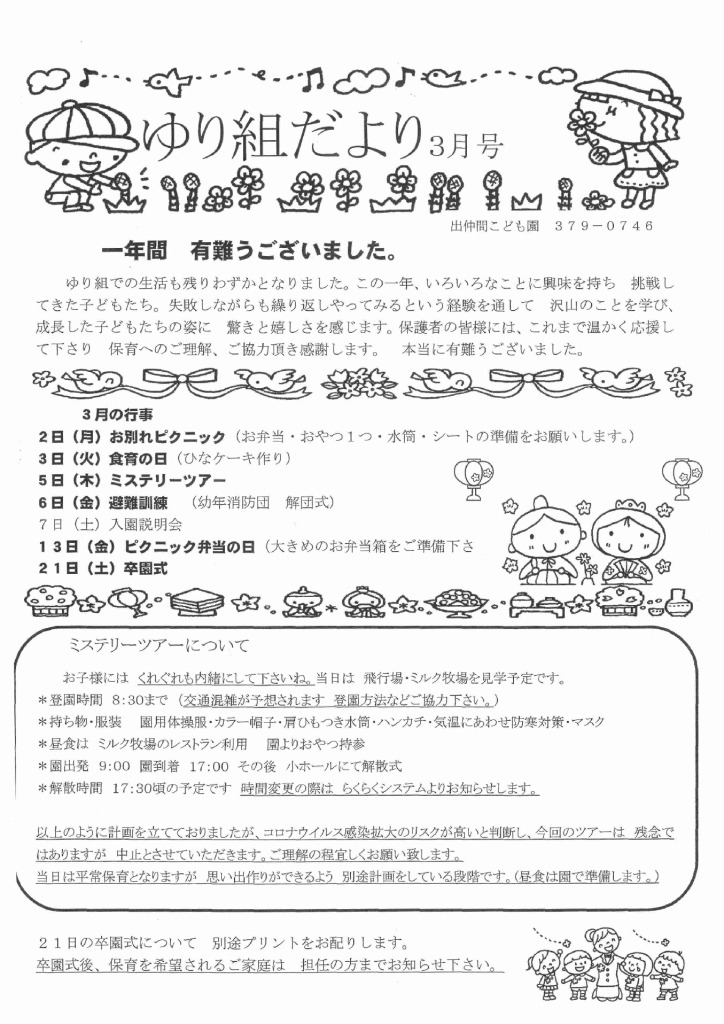 ゆり組だより3月号
出仲間こども園　３７９－０７４６
一年間　有難うございました。
ゆり組での生活も残りわずかとなりました。この一年、いろいろなことに興味を持ち　挑戦し
てきた子どもたち。失敗しながらも繰り返しやってみるという経験を通して　沢山のことを学び、
成長した子どもたちの姿に　驚きと嬉しさを感じます。保護者の皆様には、これまで温かく応援し
て下さり　保育へのご理解、ご協力頂き感謝します。　本当に有難うございました。
３月の行事
２日（月）お別れピクニック（お弁当・おやつ１つ・水筒・シートの準備をお願いします。）
３日（火）食育の日（ひなケーキ作り）
５日（木）ミステリーツアー
６日（金）避難訓練　（幼年消防団　解団式）
７日（土）入園説明会
１３日（金）ピクニック弁当の日（大きめのお弁当箱をご準備下さ
２１日（土）卒園式
ミステリーツアーについて
お子様には くれぐれも内緒にして下さいね。当日は 飛行場・ミルク牧場を見学予定です。
＊登園時間 8:30まで（交通混雑が予想されます 登園方法などご協力下さい。）
＊持ち物・服装　園用体操服・カラー帽子・肩ひもつき水筒・ハンカチ・気温にあわせ防寒対策・マスク
＊昼食は ミルク牧場のレストラン利用　園よりおやつ持参
＊園出発 9:00 園到着 17:00 その後 小ホールにて解散式
＊解散時間 17:30頃の予定です 時間変更の際は らくらくシステムよりお知らせします。
以上のように計画を立てておりましたが、コロナウイルス感染拡大のリスクが高いと判断し、今回のツアーは 残念で
はありますが 中止とさせていただきます。ご理解の程宜しくお願い致します。
当日は平常保育となりますが 思い出作りができるよう 別途計画をしている段階です。（昼食は園で準備します。）
２１日の卒園式について　別途プリントをお配りします。
卒園式後、保育を希望されるご家庭は　担任の方までお知らせ下さい。